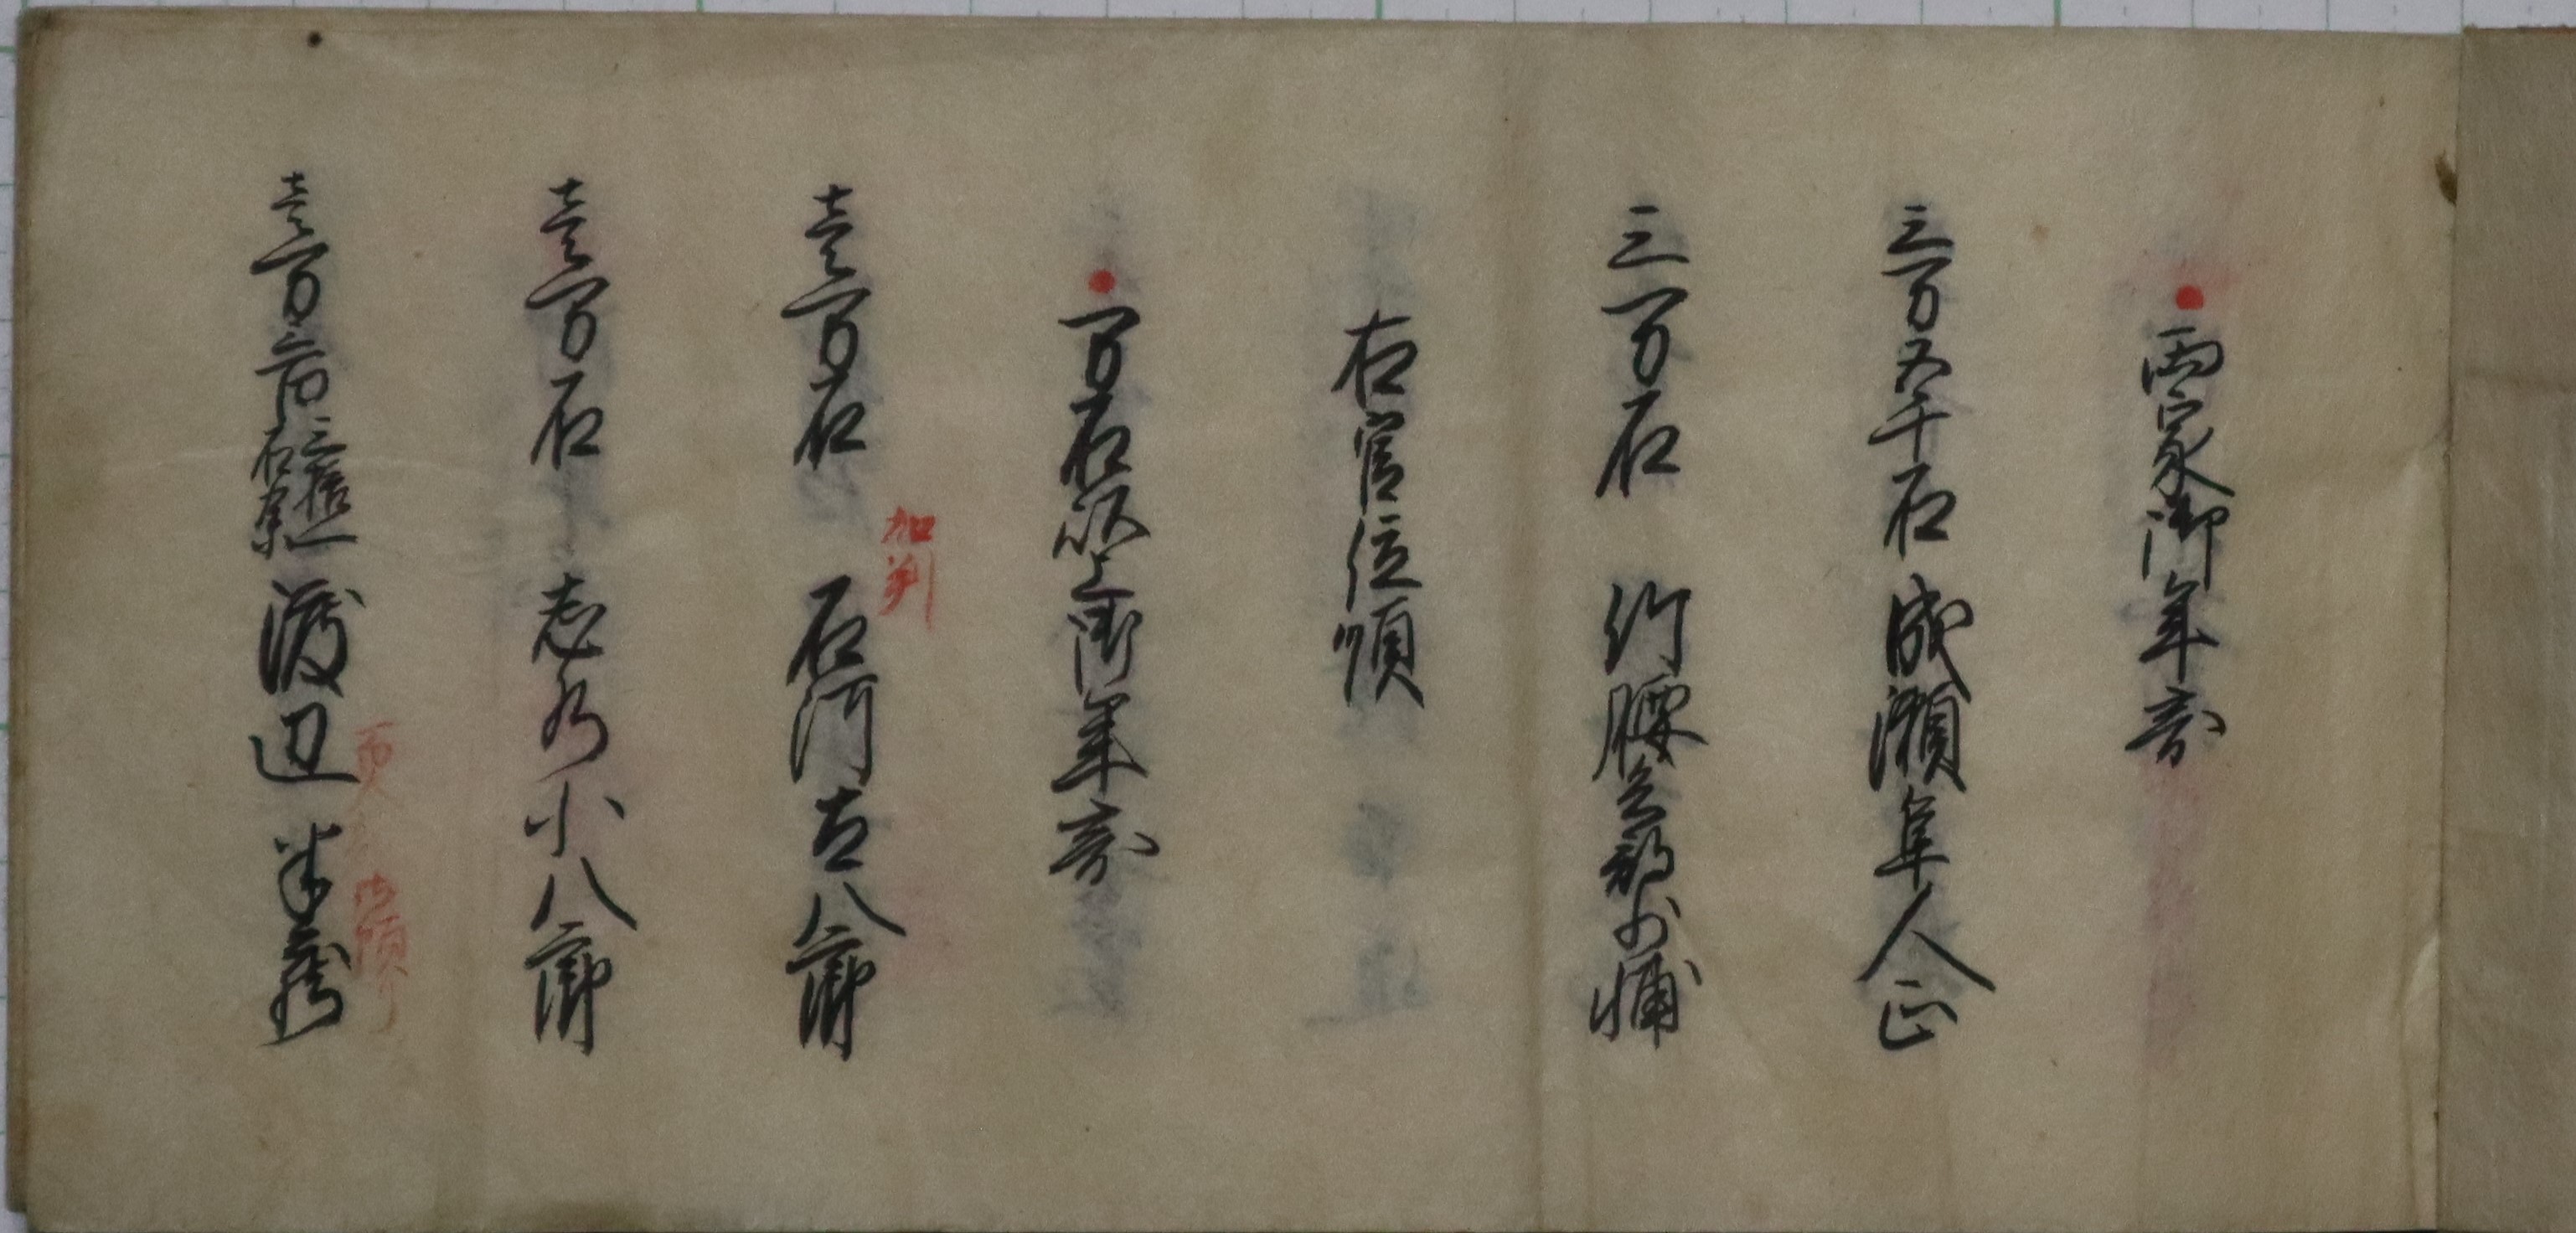 両家御年寄
三万五千石 成瀬隼人正
三万石 竹腰兵部少輔
右官位順
万石以上御年寄
加判
壱万石 石河 八郎
壱万石 志水小八郎
壱万 渡辺半蔵